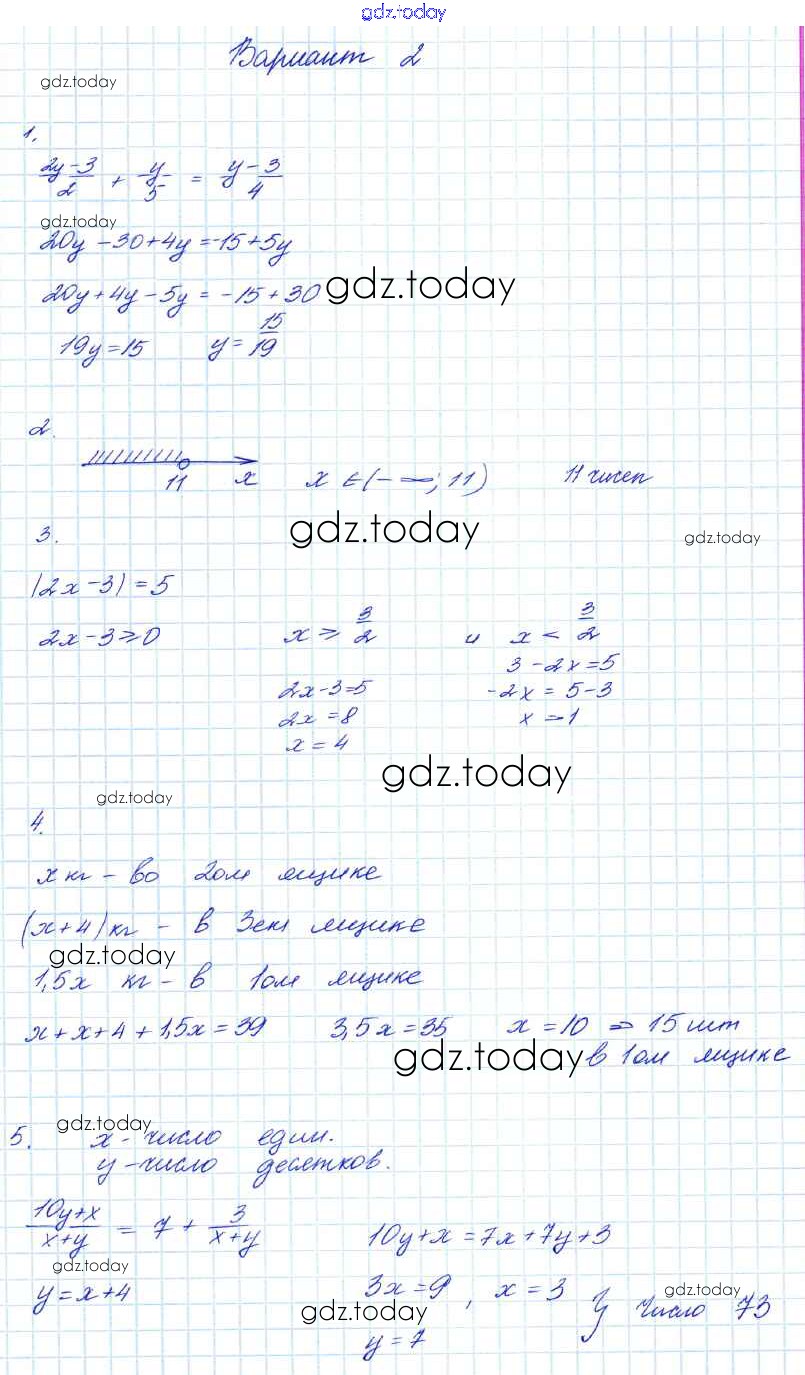 gdz.today
Вариант 2
gdz.today
1.
(2y-3)/2 + y/5 = (y-3)/4
gdz.today
20y - 30 + 4y = -15 + 5y
20y + 4y - 5y = -15 + 30 gdz.today
19y = 15 y = 15/19
2.
11 x x ∈ (-∞; 11) 11 чисел
gdz.today
3. gdz.today
|2x - 3| = 5
2x - 3 ≥ 0 x ≥ 3/2 и x < 3/2
3 - 2x = 5
2x - 3 = 5 -2x = 5 - 3
2x = 8 x = -1
x = 4
gdz.today
gdz.today
4.
x кг - во 2ом ящике
(x+4) кг - в 3ем ящике
gdz.today
1,5x кг - в 1ом ящике
x + x + 4 + 1,5x = 39 3,5x = 35 x = 10 ⇒ 15 шт
gdz.today в 1ом ящике
gdz.today
5. x - число един.
y - число десятков.
(10y+x)/(x+y) = 7 + 3/(x+y) 10y + x = 7x + 7y + 3
gdz.today
y = x + 4 3x = 9, x = 3 } число 73
gdz.today
gdz.today
y = 7